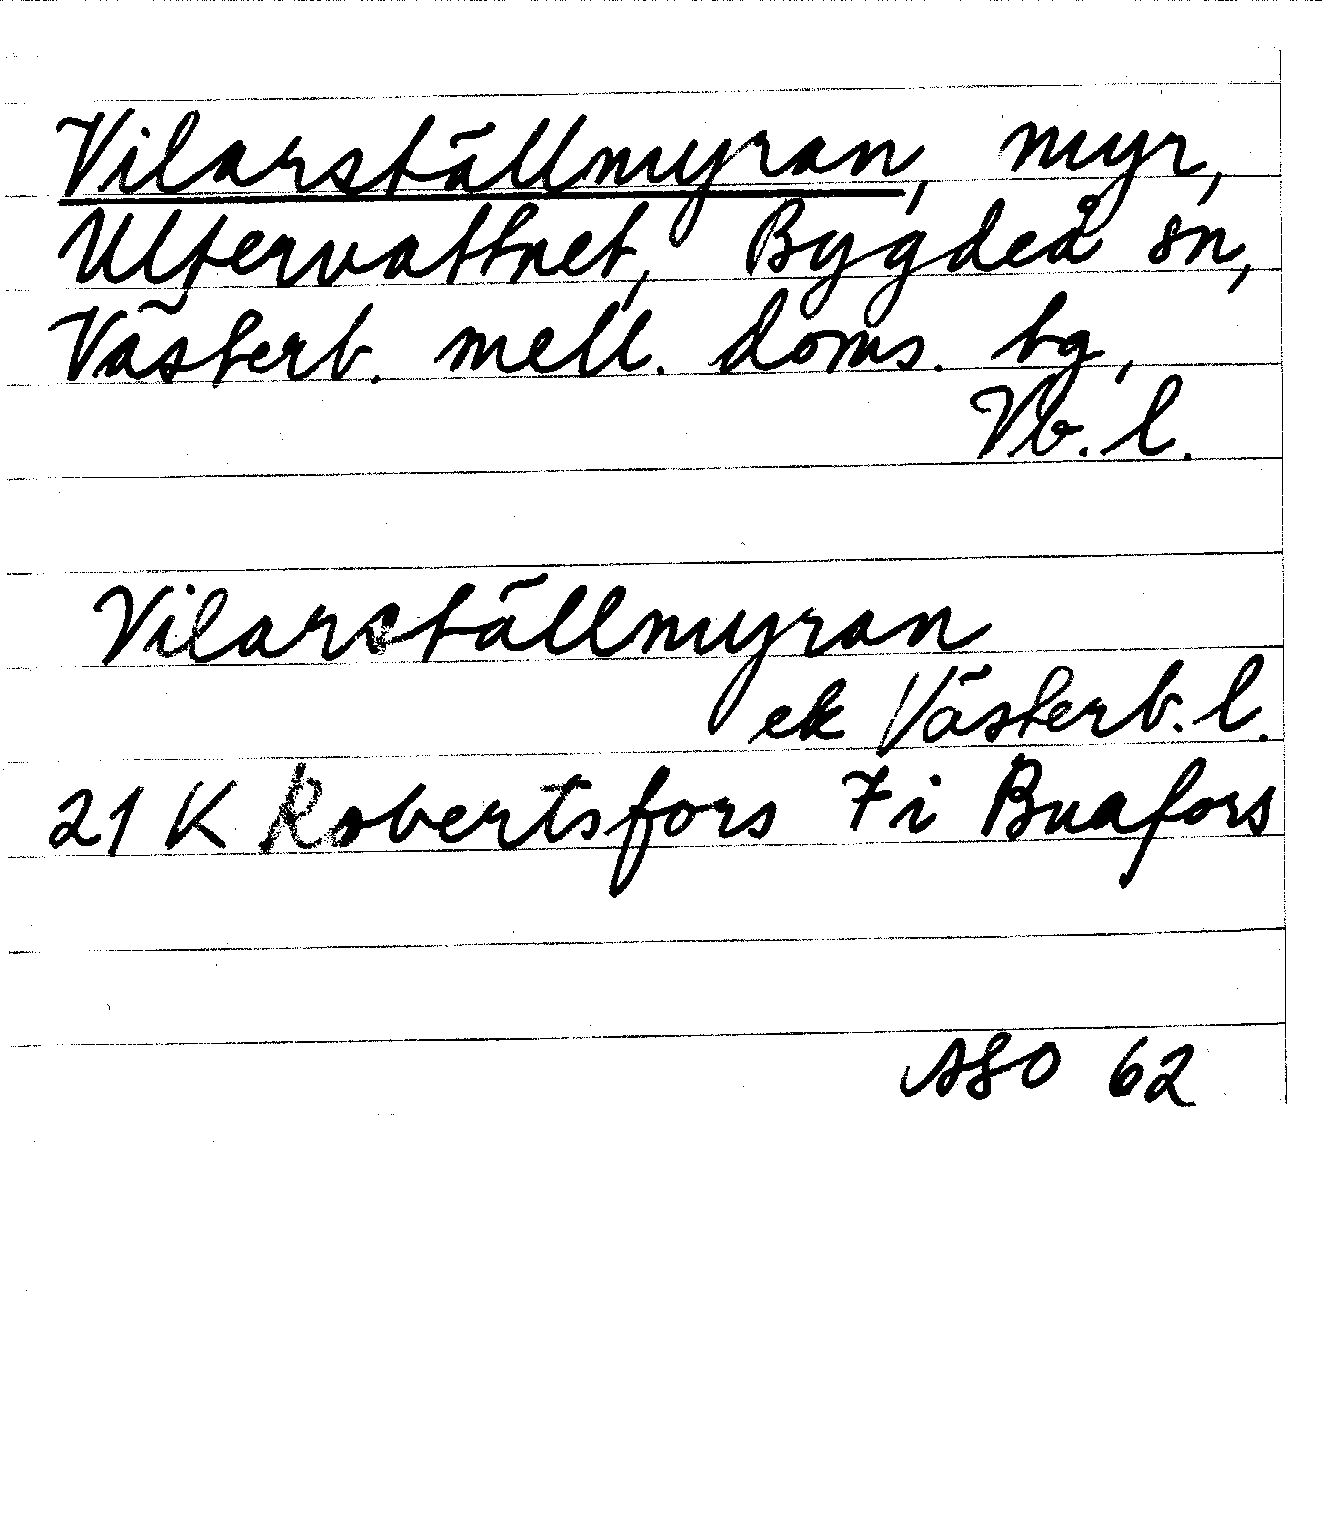 Vilarställmyran, myr,
Ultervattnet, Bygdeå sn,
Västerb. mell. doms. tg,
Vb. l.
Vilarställmyran
ek Västerb. l.
21 K Robertsfors 7 i Buafors
ASO 62